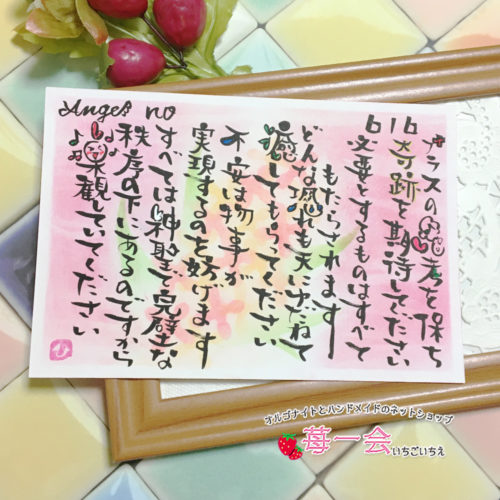 Angel no
616
プラスの思考を保ち
奇跡を期待してください
必要とするものはすべて
もたらされます
どんな恐れも天にゆだねて
癒してもらってください
不安は物事が
実現するのを妨げます
すべては神聖で完璧な
秩序の下にあるのですから
楽観していてください
オルゴナイトとハンドメイドのネットショップ
苺一会いちごいちえ